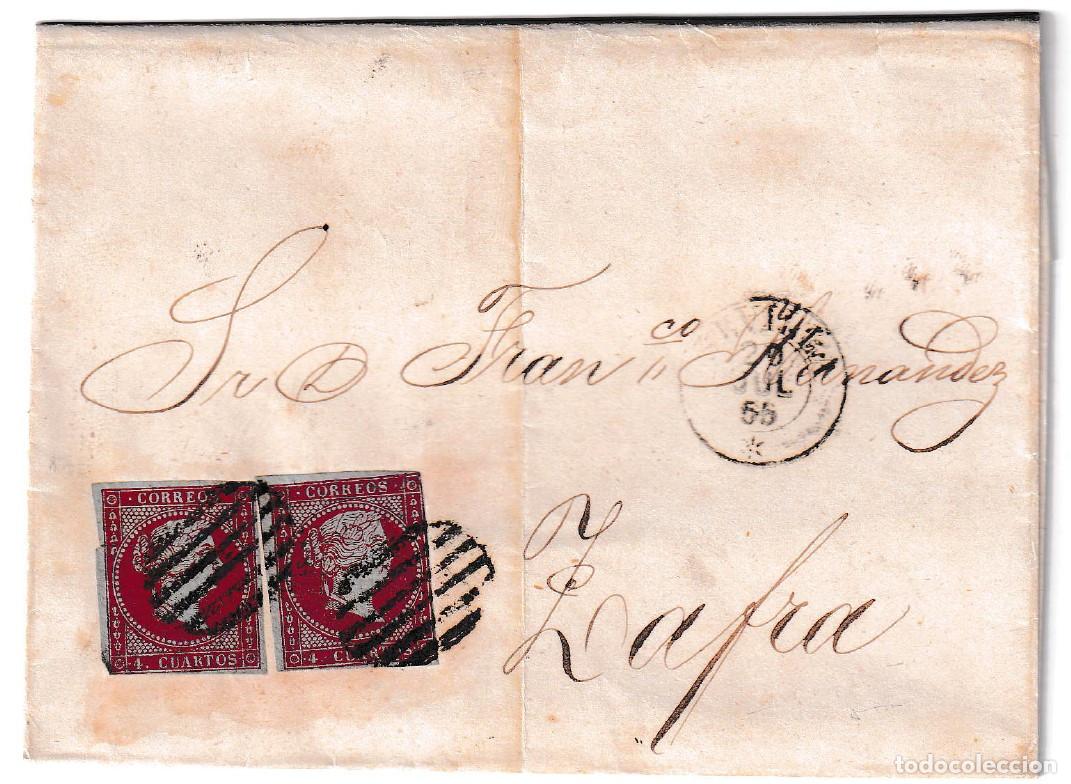 Sr D Franco Hernandez
JUL
56
*
Zafra
CORREOS
4 CUARTOS
CORREOS
4 CUARTOS
todocoleccion